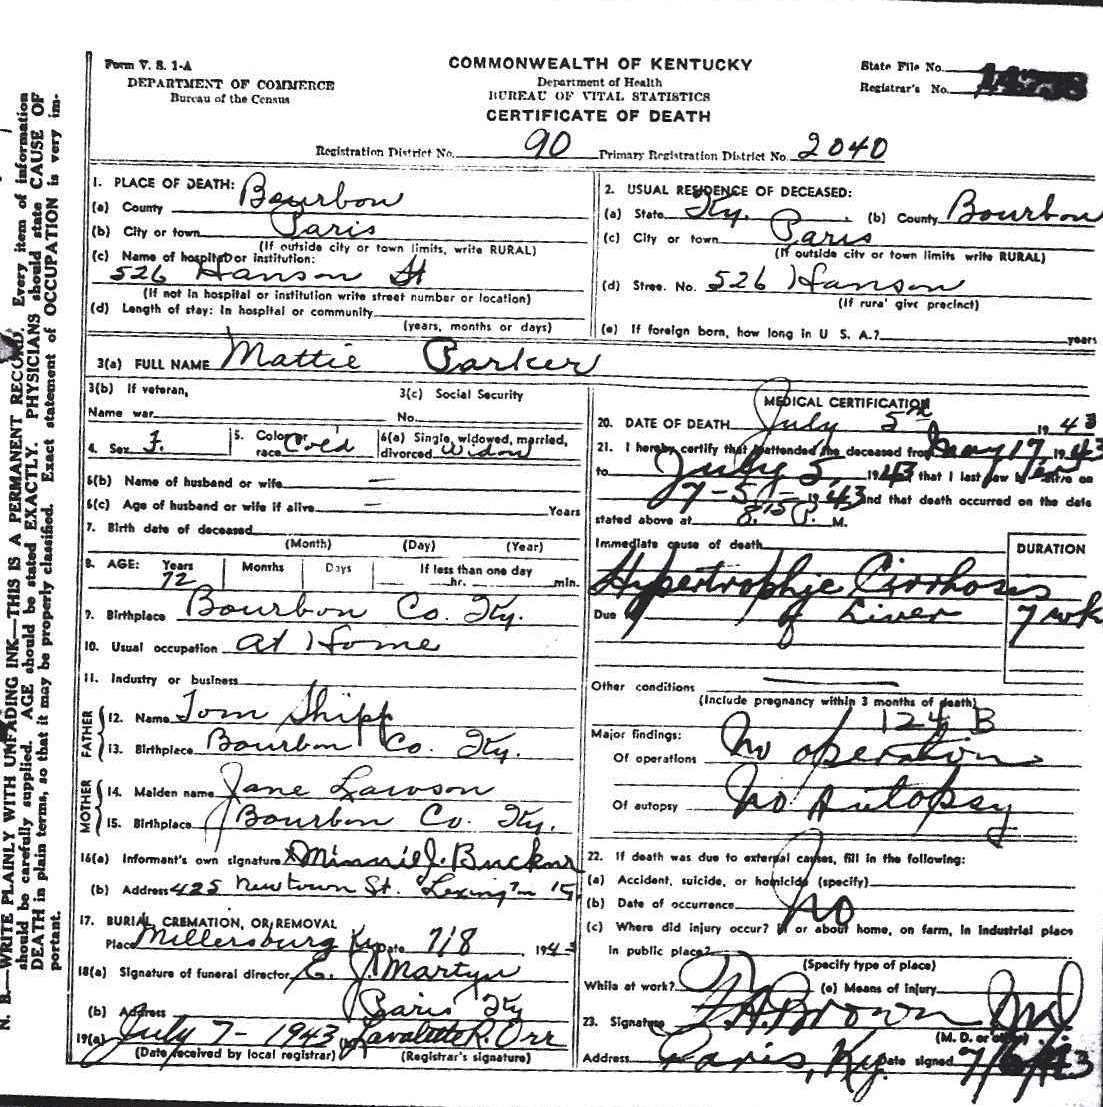 N. B.—WRITE PLAINLY WITH UNFADING INK—THIS IS A PERMANENT RECORD. Every item of information
should be carefully supplied. AGE should be stated EXACTLY. PHYSICIANS should state CAUSE OF
DEATH in plain terms, so that it may be properly classified. Exact statement of OCCUPATION is very im-
portant.
Form V. S. 1-A
DEPARTMENT OF COMMERCE
Bureau of the Census
COMMONWEALTH OF KENTUCKY
Department of Health
BUREAU OF VITAL STATISTICS
CERTIFICATE OF DEATH
State File No.
Registrar's No.
Registration District No. 90 Primary Registration District No. 2040
1. PLACE OF DEATH:
(a) County Bourbon
(b) City or town Paris
(If outside city or town limits, write RURAL)
(c) Name of hospital or institution:
526 Hanson St
(If not in hospital or institution write street number or location)
(d) Length of stay: In hospital or community
(years, months or days)
2. USUAL RESIDENCE OF DECEASED:
(a) State Ky. (b) County Bourbon
(c) City or town Paris
(If outside city or town limits write RURAL)
(d) Stree. No. 526 Hanson
(If rura' give precinct)
(e) If foreign born, how long in U S. A.? years
3(a) FULL NAME Mattie Parker
3(b) If veteran,
Name war
3(c) Social Security
No.
4. Sex F.
5. Color or
race Cold
6(a) Single, widowed, married,
divorced Widow
6(b) Name of husband or wife —
6(c) Age of husband or wife if alive — Years
7. Birth date of deceased
(Month) (Day) (Year)
8. AGE: Years Months Days If less than one day
72 hr. min.
9. Birthplace Bourbon Co. Ky.
10. Usual occupation at Home
11. Industry or business
FATHER
12. Name Tom Shipp
13. Birthplace Bourbon Co. Ky.
MOTHER
14. Maiden name Jane Lawson
15. Birthplace Bourbon Co. Ky.
16(a) Informant's own signature Minnie J. Buckner
(b) Address 425 Newtown St. Lexington
17. BURIAL, CREMATION, OR REMOVAL
Place Millersburg Ky Date 7/8 1943
18(a) Signature of funeral director E. J. Martyn
(b) Address Paris Ky
19(a) July 7 - 1943 (b) Lavalette R. Orr
(Date received by local registrar) (Registrar's signature)
MEDICAL CERTIFICATION
20. DATE OF DEATH July 5th 1943
21. I hereby certify that I attended the deceased from May 17, 1943
to July 5, 1943 that I last saw her alive on
7-5- 1943 and that death occurred on the date
stated above at 8:15 P. M.
Immediate cause of death DURATION
Hypertrophic Cirrhosis
Due of Liver 7 wk
Other conditions
(Include pregnancy within 3 months of death)
124 B
Major findings:
Of operations No operation
Of autopsy No Autopsy
22. If death was due to external causes, fill in the following:
(a) Accident, suicide, or homicide (specify)
(b) Date of occurrence No
(c) Where did injury occur? In or about home, on farm, in industrial place
in public place?
(Specify type of place)
While at work? (e) Means of injury
23. Signature Brown MD.
(M. D. or other)
Address Paris, Ky. Date signed 7/6/43